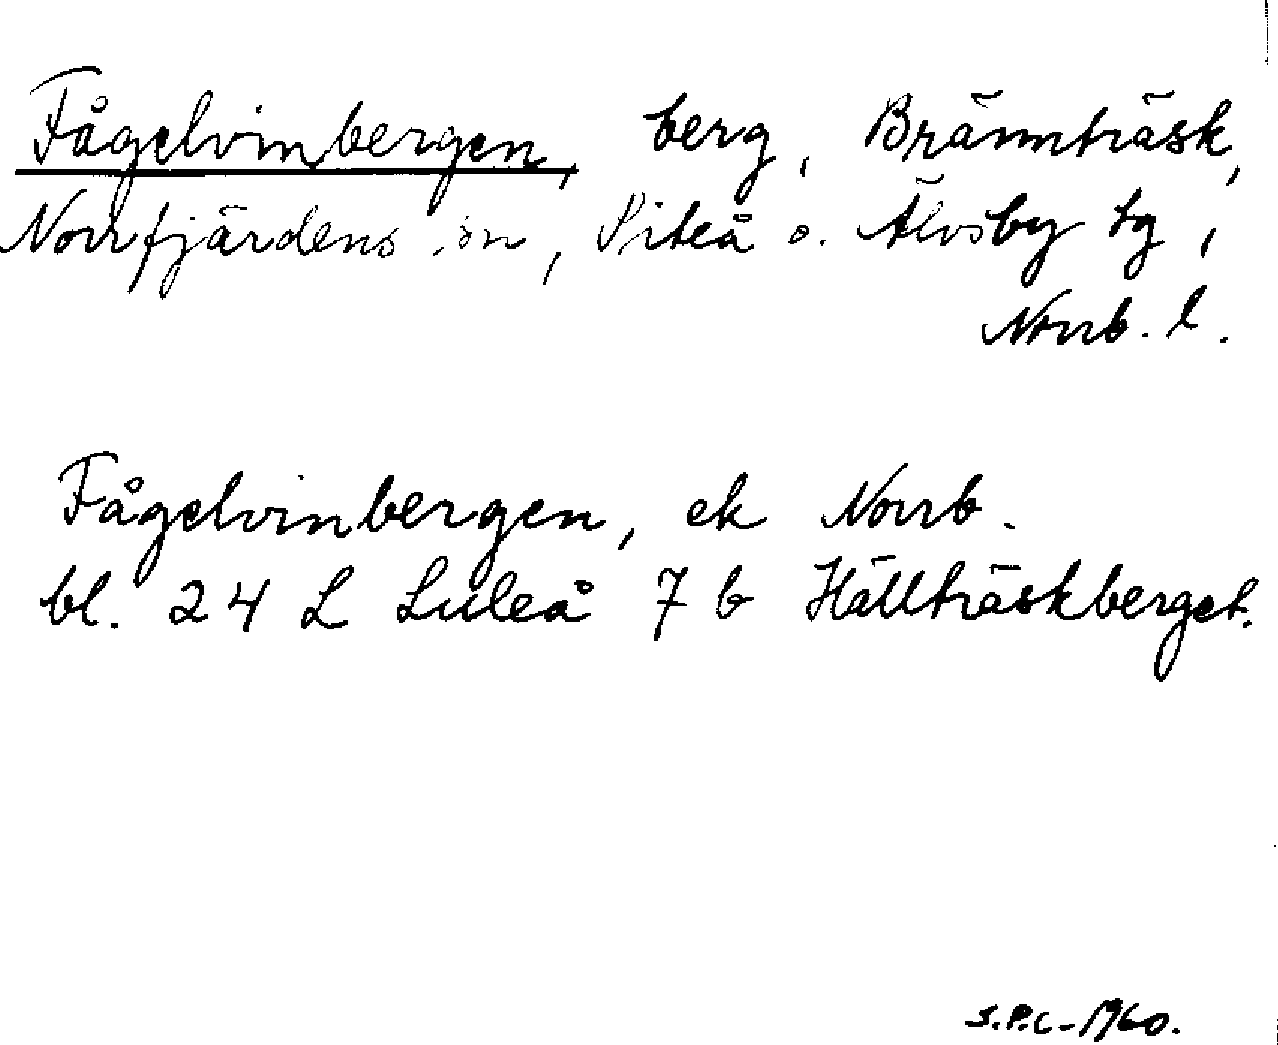 Fågelvinbergen, berg, Brännträsk,
Norrfjärdens sn, Piteå o. Älvsby tg,
Norrb. l.
Fågelvinbergen, ek Norrb.
bl. 24 L Luleå 7 b Hällträskberget.
S.P.C-1960.